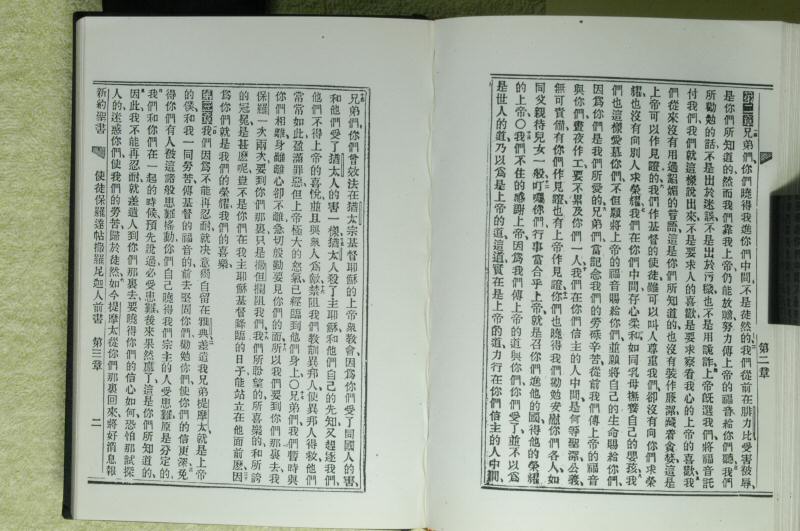 第二章
第二章兄弟們、你們曉得我進你們中間不是徒然的、我們從前在腓力比受害被辱、
是你們所知道的、然而我們靠我上帝仍能放膽努力傳上帝的福音給你們聽、我們
所勸勉的話、不是出於迷誤、不是出於污穢、也不是用詭詐、上帝旣選我們、將福音託
付我們、我們就這樣說出來、不是要求人的喜歡、是要求察看我心的上帝的喜歡、我
們從來沒有用過諂媚的言語、這是你們所知道的、也沒有裝作廉潔藏着貪婪、這是
上帝可以作見證的、我們作基督的使徒、雖可以叫人尊重我們、卻沒有向你們求榮
耀、也沒有向別人求榮耀、我們在你們中間存心柔和、如同乳母撫養自己的嬰孩、我
們也這樣愛慕你們、不但願將上帝的福音賜給你們、並願將自己的生命賜給你們、
因爲你們是我們所愛的、兄弟們、當記念我們的勞碌辛苦、從前我們傳上帝的福音
與你們、晝夜作工、要不累及你們一人、我們在你們信主的人中間、是何等聖潔、公義、
無可責備、有你們作見證、也有上帝作見證、你們也曉得我們勸勉安慰你們各人、如
同父親待兒女一般、叮囑你們行事當合乎上帝、就是召你們進他的國、得他的榮耀
的上帝、〇我們不住的感謝上帝、因爲我們傳上帝的道與你們、你們受了、並不以爲
是世人的道、乃以爲是上帝的道、這道實在是上帝的道、力行在你們信主的人中間、
兄弟們、你們曾效法在猶太宗基督耶穌的上帝衆敎會、因爲你們受了同國人的害、
和他們受了猶太人的害一樣、猶太人殺了主耶穌和他們自己的先知、又趕逐我們、
他們不得上帝的喜悅、並且與衆人爲敵、禁阻我們敎訓異邦人、使異邦人得救、他們
常常如此盈滿罪惡、但上帝極大的怒氣已經臨到他們身上、〇兄弟們、我們暫時與
你們相離、身雖離、心卻不離、急切殷勤要見你們的面、所以我們要到你們那裏去、我
保羅一次兩次要到你們那裏、只是撒但攔阻我們、我們所盼望的、所喜樂的、和所誇
的冠冕、是甚麽呢、豈不是你們在我主耶穌基督降臨的日子、能站立在他面前麽、因
爲你們就是我們的榮耀、我們的喜樂、
第三章我們因爲不能再忍耐、就決意獨自留在雅典、差遣我兄弟提摩太、就是上帝
的僕、和我一同勞苦傳基督的福音的、前去堅固你們、勸勉你們、使你們的信更深、免
得你們有人被這諸般患難搖動、你們自己曉得我們宗主的人受患難、原是分定的、
我們和你們在一起的時候、預先說過必受患難、後來果然應了、這是你們所知道的、
因此我不能再忍耐、就差遣人到你們那裏去、要曉得你們的信心如何、恐怕那試探
人的迷惑你們、使我們的勞苦歸於徒然、如今提摩太從你們那裏回來、將好消息報
新約聖書 使徒保羅達帖撒羅尼迦人前書 第三章 二